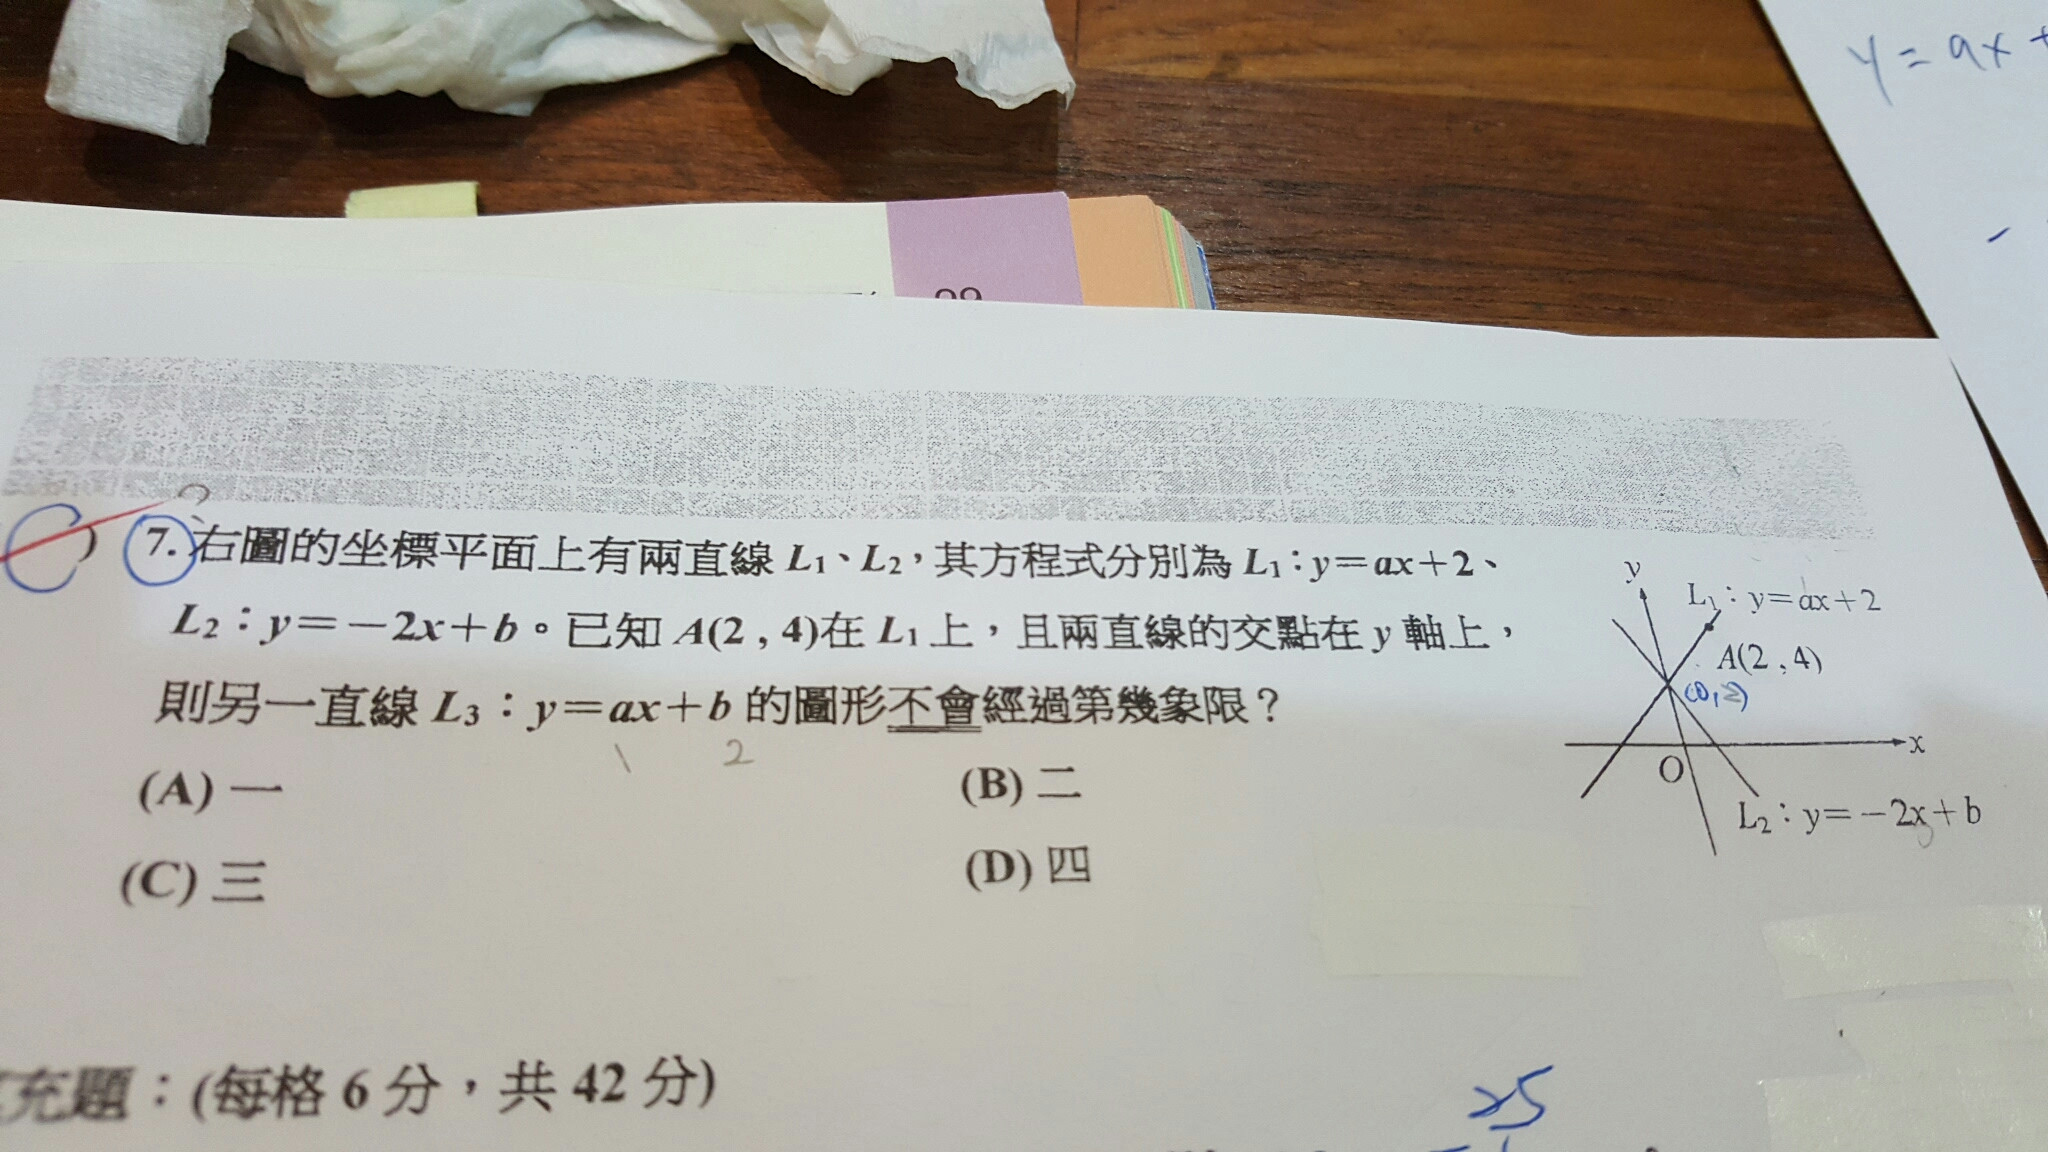 y=ax+
7.右圖的坐標平面上有兩直線 L₁、L₂，其方程式分別為 L₁：y=ax+2、
L₂：y=－2x+b。已知 A(2 , 4)在 L₁ 上，且兩直線的交點在 y 軸上，
則另一直線 L₃：y=ax+b 的圖形不會經過第幾象限？
1 2
(A) 一
(B) 二
(C) 三
(D) 四
y
L₁：y=ax+2
A(2 , 4)
(0,2)
x
O
L₂：y=－2x+b
充題：(每格 6 分，共 42 分)
25